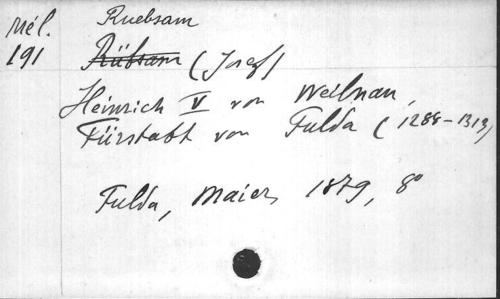 Mél. Ruebsam
191 Rübsam (Josef)
Heinrich V von Weilnau,
Fürstabt von Fulda (1288-1313)
Fulda, Maier, 1879, 8°